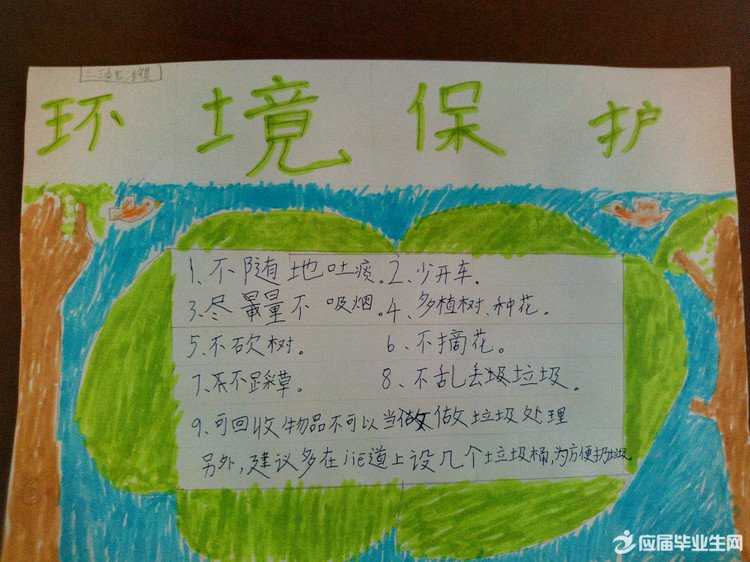 环境保护
1、不随地吐痰。2、少开车。
3、尽量不吸烟。4、多植树、种花。
5、不砍树。 6、不摘花。
7、不踩草。 8、不乱丢垃圾。
9、可回收物品不可以当做垃圾处理
另外,建议多在jie道上设几个垃圾桶,为方便扔垃圾
应届毕业生网